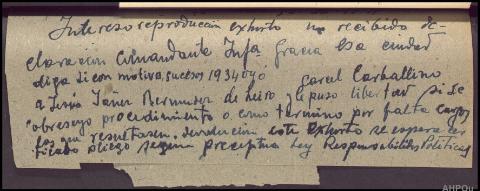 Intereso reproduccion exhorto no recibido de-
claracion Comandante Infa Gracia esa ciudad
diga si con motivo sucesos 1934 carcel Carballino
a Jesus Bermudez de Leiro y le puso libertad si se
procedimiento o como termino por falta cargos
resultasen. devolucion este exhorto se espera
segun preceptua Ley Responsabilides Politicas
AHPOu